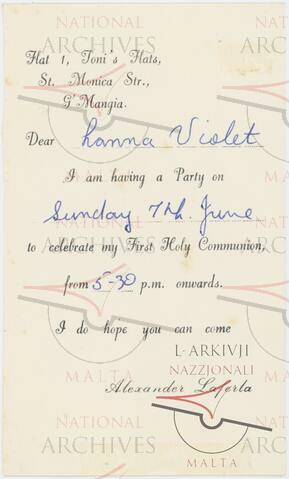 NATIONAL
ARCHIVES
MALTA
Flat 1, Toni's Flats,
St. Monica Str.,
G'Mangia.
Dear Nanna Violet
I am having a Party on
Sunday 7th. June
to celebrate my First Holy Communion,
from 5-30 p.m. onwards.
I do hope you can come
L-ARKIVJI
NAZZJONALI
MALTA
Alexander Laferla
NATIONAL
ARCHIVES
MALTA